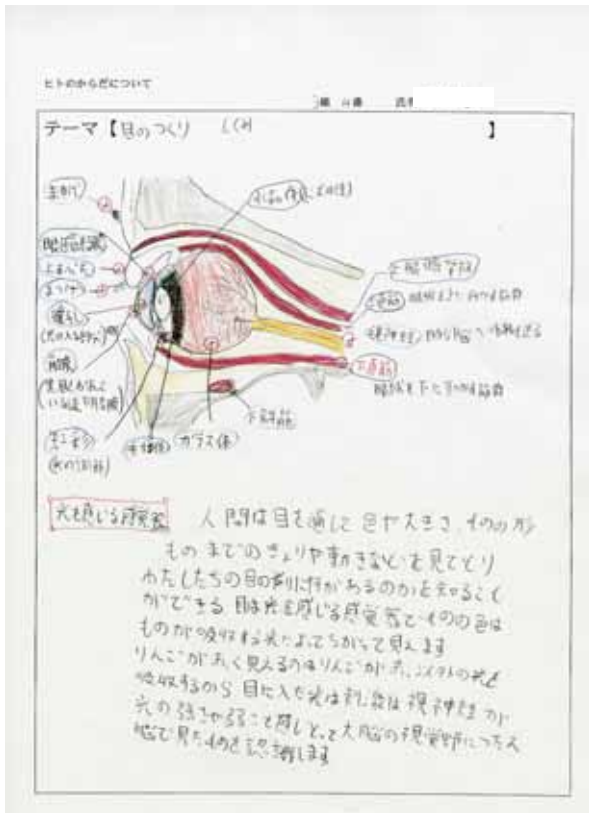 ヒトのからだについて
テーマ【目のつくり 】
まゆげ
眼球結膜
上まぶた
まつげ
瞳孔
角膜
虹彩
水晶体
ガラス体
下斜筋
上眼瞼挙筋
上直筋 眼球を上に向ける筋肉
視神経
下直筋
眼球を下に向ける筋肉
光を感じる感覚器 人間は目を通して色や大きさ、ものの形
ものまでのきょりや動きなどを見てとり
わたしたちの目の前に何があるのかを知ること
ができる 目は光を感じる感覚器でものの色は
ものが吸収する光によってちがって見えます
りんごがあかく見えるのはりんごがあか以外の光を
吸収するから 目に入た光は 視神経が
光の強さや弱さを感じとって大脳の視覚野につたえ
脳で見たものを認識します